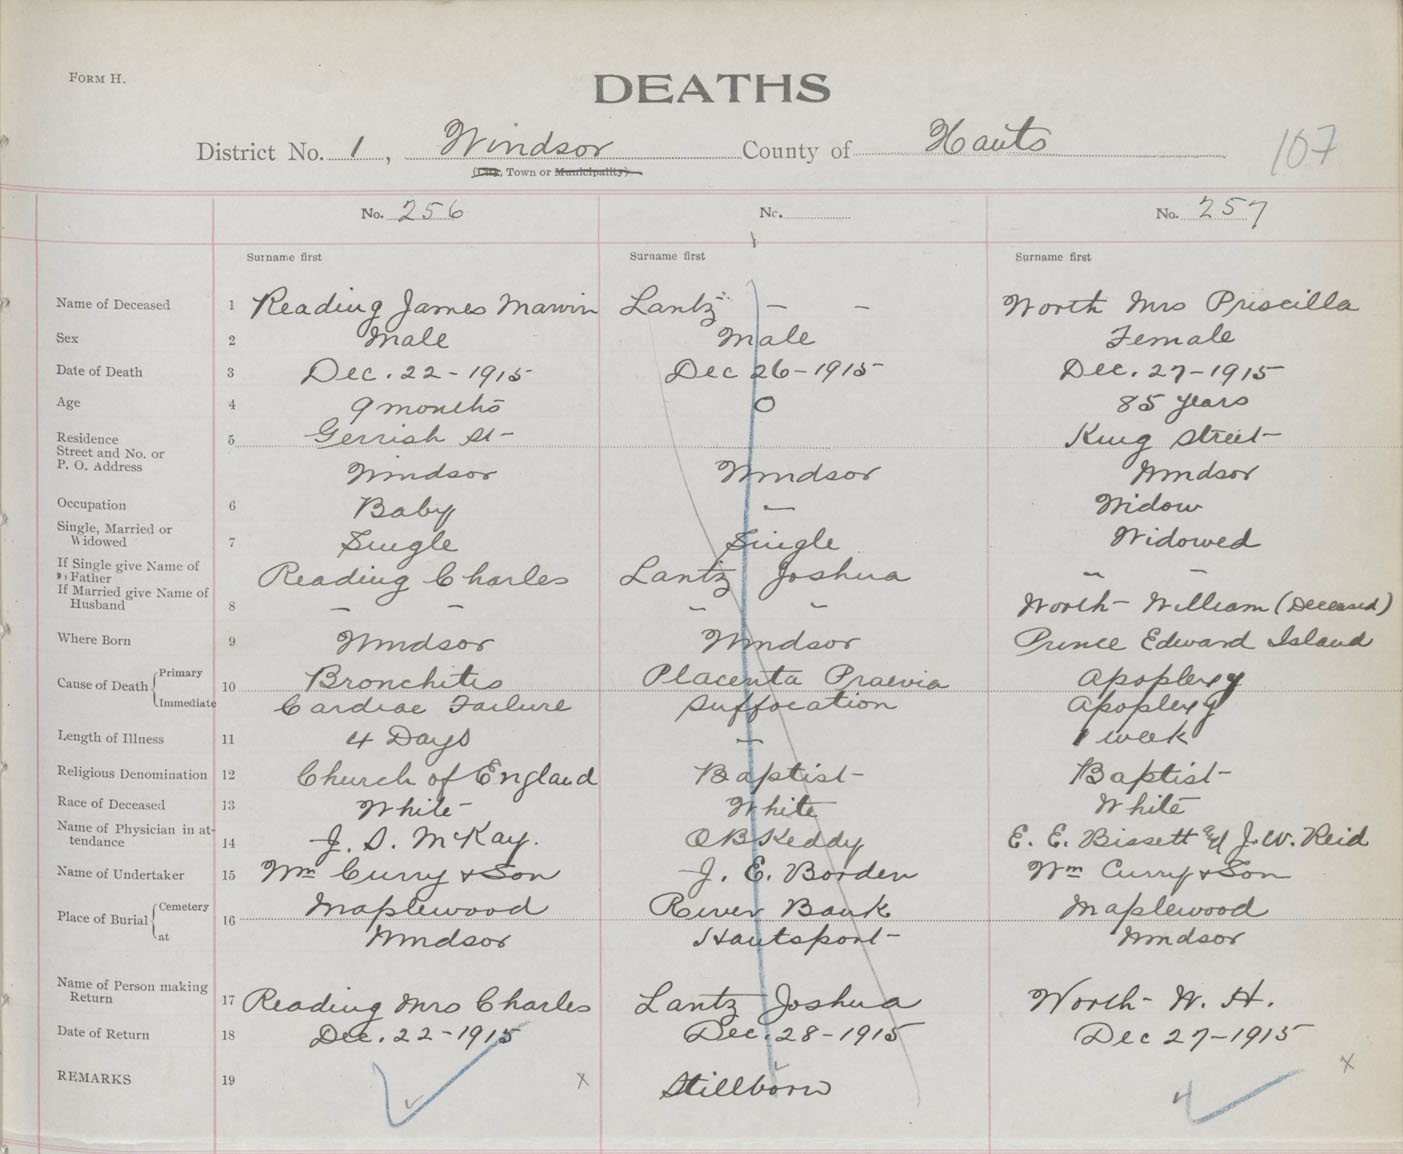 FORM H.
DEATHS
District No. 1, Windsor County of Hants
107
(City, Town or Municipality)
No. 256 No. No. 257
Surname first Surname first Surname first
Name of Deceased 1 Reading James Marvin Lantz - - Worth Mrs Priscilla
Sex 2 Male Male Female
Date of Death 3 Dec. 22-1915 Dec 26-1915 Dec. 27-1915
Age 4 9 months 0 85 years
Residence 5 Gerrish St- King Street-
Street and No. or
P. O. Address Windsor Windsor Windsor
Occupation 6 Baby - Widow
Single, Married or
Widowed 7 Single Single Widowed
If Single give Name of
Father Reading Charles Lantz Joshua - -
If Married give Name of
Husband 8 - - - - Worth- William (Deceased)
Where Born 9 Windsor Windsor Prince Edward Island
Cause of Death Primary 10 Bronchitis Placenta Praevia Apoplexy
Immediate Cardiac Failure Suffocation Apoplexy
Length of Illness 11 4 Days - 1 week
Religious Denomination 12 Church of England Baptist- Baptist-
Race of Deceased 13 White White White
Name of Physician in at-
tendance 14 J. S. McKay. O B Keddy E. E. Bissett & J. W. Reid
Name of Undertaker 15 Wm Curry & Son J. E. Borden Wm Curry & Son
Place of Burial Cemetery 16 Maplewood River Bank Maplewood
at Windsor Hantsport- Windsor
Name of Person making
Return 17 Reading Mrs Charles Lantz Joshua Worth- W. H.
Date of Return 18 Dec. 22-1915 Dec. 28-1915 Dec 27-1915
REMARKS 19 x Stillborn x